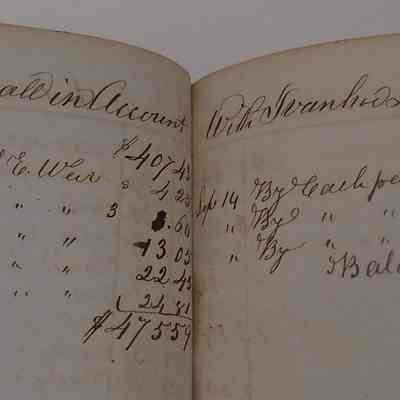 ald in Account
$ 40743
E. War 425
" " 3 8.60
" " 13 05
" " 22 45
" " 24 81
$ 475 59
With Ivanhoe
Sept 14 By Cash pe
" By " "
" By " "
Bal